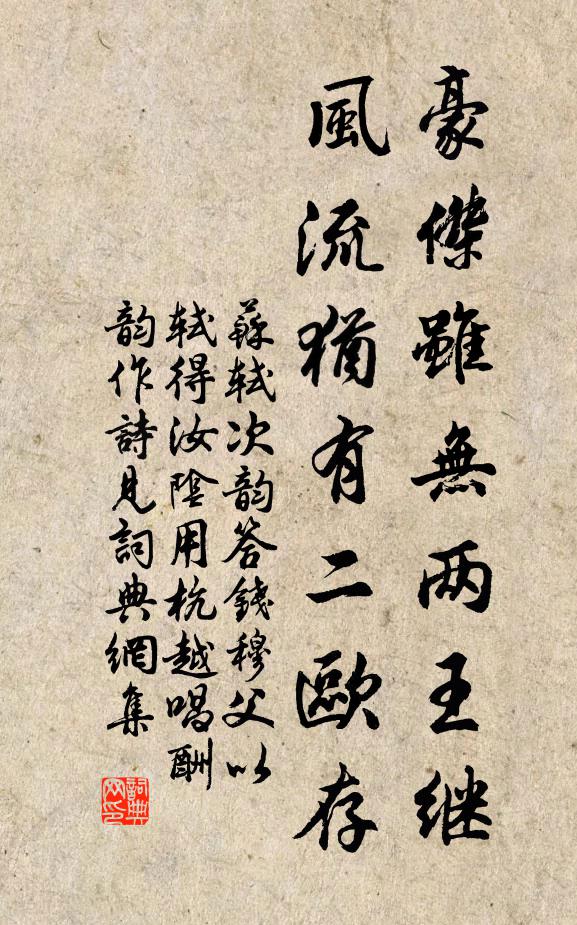 豪傑雖無两王继
風流猶有二歐存
蘇軾次韵答錢穆父以
軾得汝陰用杭越唱酬
韵作詩見詞典網集
詞典网印